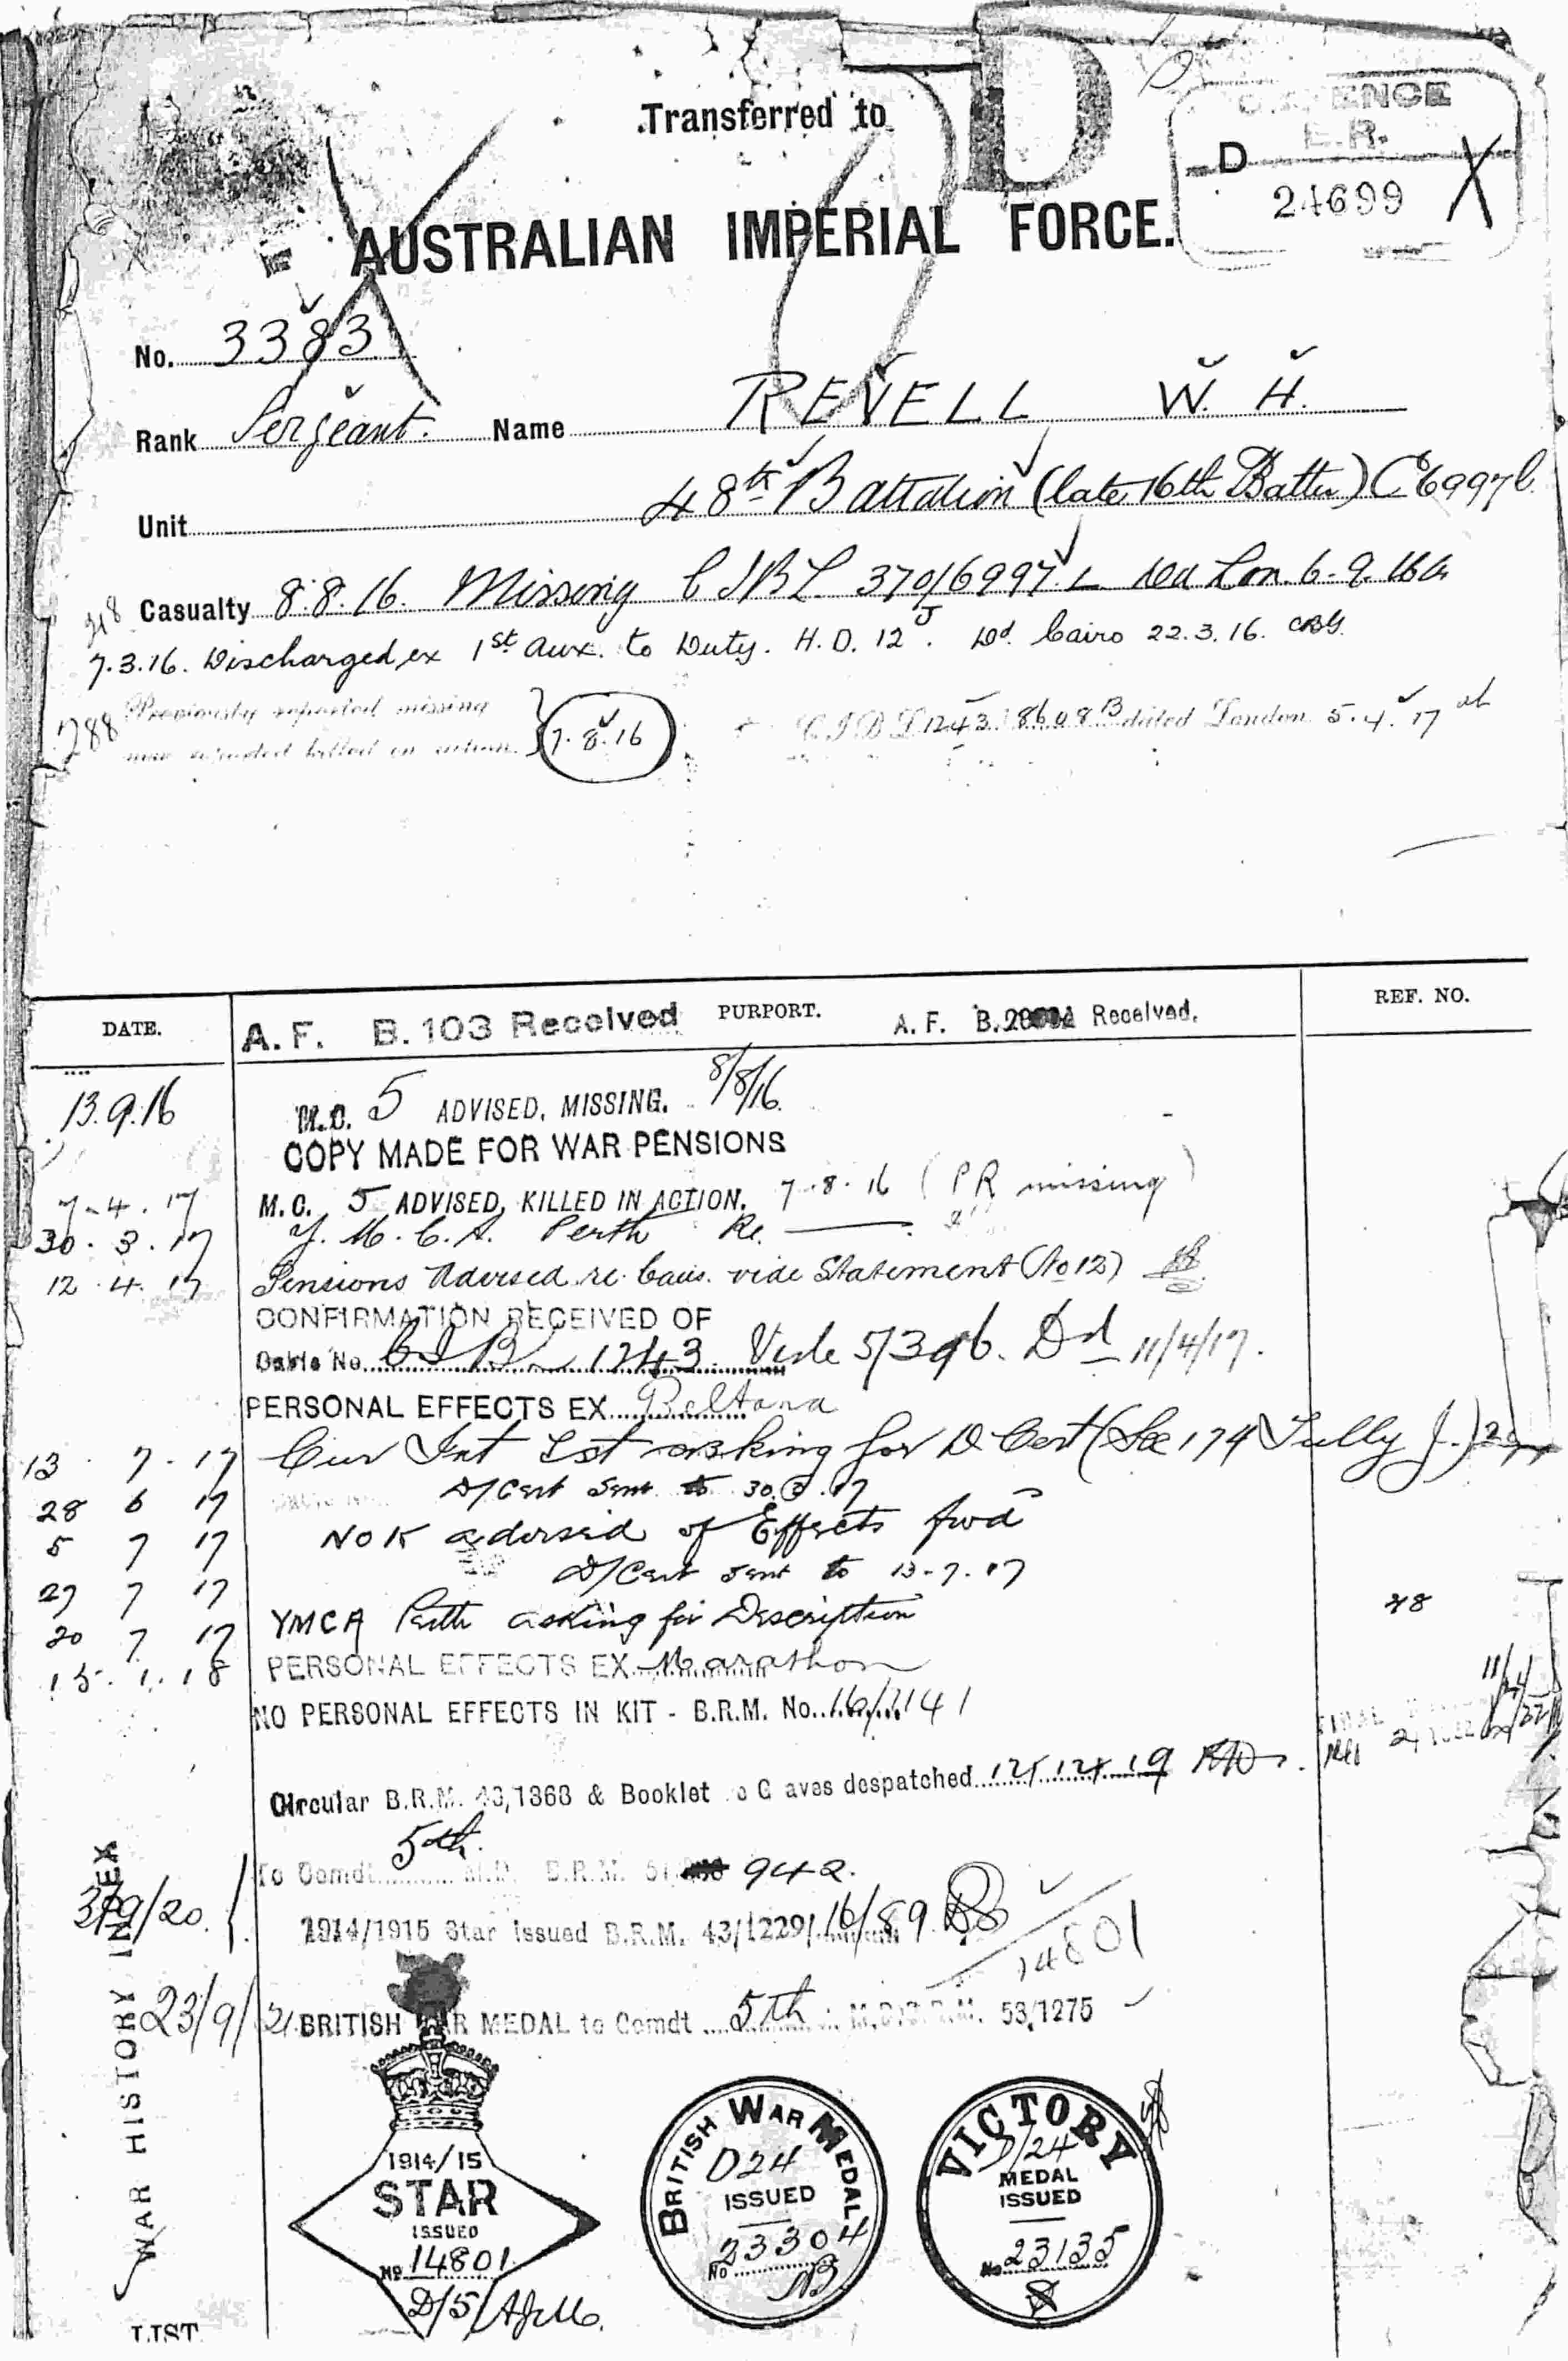 Transferred to
D
DEFENCE
E.R.
D
24699
AUSTRALIAN IMPERIAL FORCE.
No. 3383
Rank Sergeant. Name REVELL W. H.
Unit 48th Battalion (late 16th Battn) C 6997 L
Casualty 8.8.16. Missing C I B L 370/6997 L Dd Lon. 6.9.16
7.3.16. Discharged ex 1st Aux. to Duty. H.D. 12 J. Dd. Cairo 22.3.16.
288 Previously reported missing
now reported killed in action. } 7.8.16 C I B L 1243 8608 B dated London 5.4.17
DATE. PURPORT. REF. NO.
A. F. B. 103 Received A. F. B. Received.
13.9.16 M.C. 5 ADVISED, MISSING. 8/8/16.
COPY MADE FOR WAR PENSIONS
7.4.17 M.C. 5 ADVISED, KILLED IN ACTION. 7.8.16 (PR missing)
30.3.17 Y.M.C.A. Perth Re.
12.4.17 Pensions Advised re Caus. vide Statement (No 12)
CONFIRMATION RECEIVED OF
Cable No. C I B L 1243 Vide 5/396. Dd 11/4/17.
PERSONAL EFFECTS EX Beltana
13.7.17 Cur Int Est asking for D Cert (See 174 Tully J.)
28 6 17 D/Cert sent to 30.3.17
5 7 17 NOK advised of Effects fwd
27 7 17 D/Cert sent to 13.7.17
20 7 17 YMCA Perth asking for Description 28
15.1.18 PERSONAL EFFECTS EX Marathon
NO PERSONAL EFFECTS IN KIT - B.R.M. No. 16/1141
Circular B.R.M. 43,1363 & Booklet e G aves despatched 12/12/19
To Comdt 5th. M.D. B.R.M. 942.
1914/1915 Star Issued B.R.M. 43/1229/ 16/89
14801
23/9/21 BRITISH WAR MEDAL to Comdt 5th M.D. B.R.M. 53/1275
WAR HISTORY INDEX
LIST
1914/15
STAR
ISSUED
No 14801
D/5/
BRITISH WAR MEDAL
D24
ISSUED
No 23304
VICTORY
D/24
MEDAL
ISSUED
No 23135